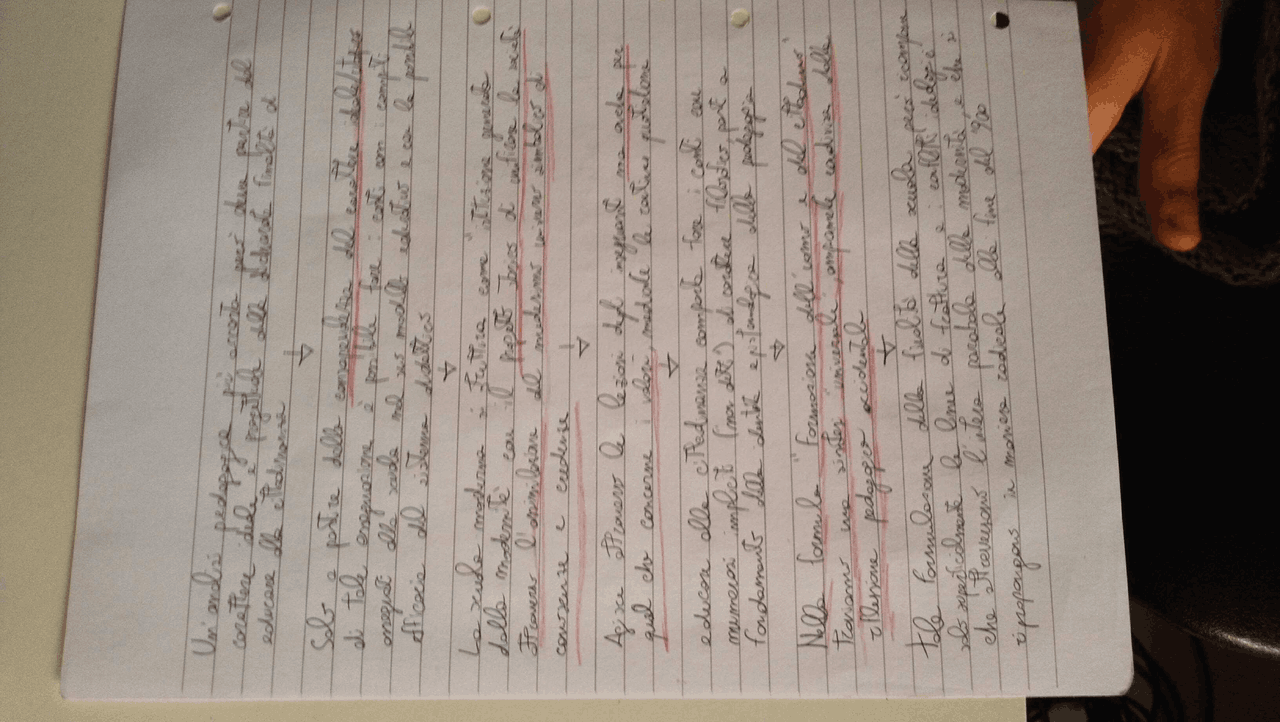 Un'analisi pedagogica più accorta può dover partire dal
carattere ideale e progettuale alla finalità di
educare alla cittadinanza
Solo a partire dalla consapevolezza del carattere
di tale enunciazione è possibile fare i conti con i compiti
assegnati alla scuola nel suo modello educativo e con la possibile
efficacia del sistema didattico
La scuola moderna si struttura come "istituzione generata
dalla modernità" con il proposito di unificare la società
attraverso l'assimilazione del medesimo universo simbolico di
conoscenze e credenze
Agisce attraverso le lezioni degli insegnanti ma anche per
quel che concerne i valori, mediante la quotidiana
educare alla cittadinanza comporta fare i conti con
numerosi impliciti (non detti) di carattere filosofico posti a
fondamento della identità epistemologica della pedagogia
Nella formula "formazione dell'uomo e del cittadino"
troviamo una sintesi universale, ampiamente condivisa della
riflessione pedagogica occidentale
Tale formulazione delle finalità della scuola però compone
solo superficialmente le linee di frattura e i conflitti ideologici
che attraversano l'intera parabola della modernità e che si
ripropongono in maniera radicale alla fine del 900